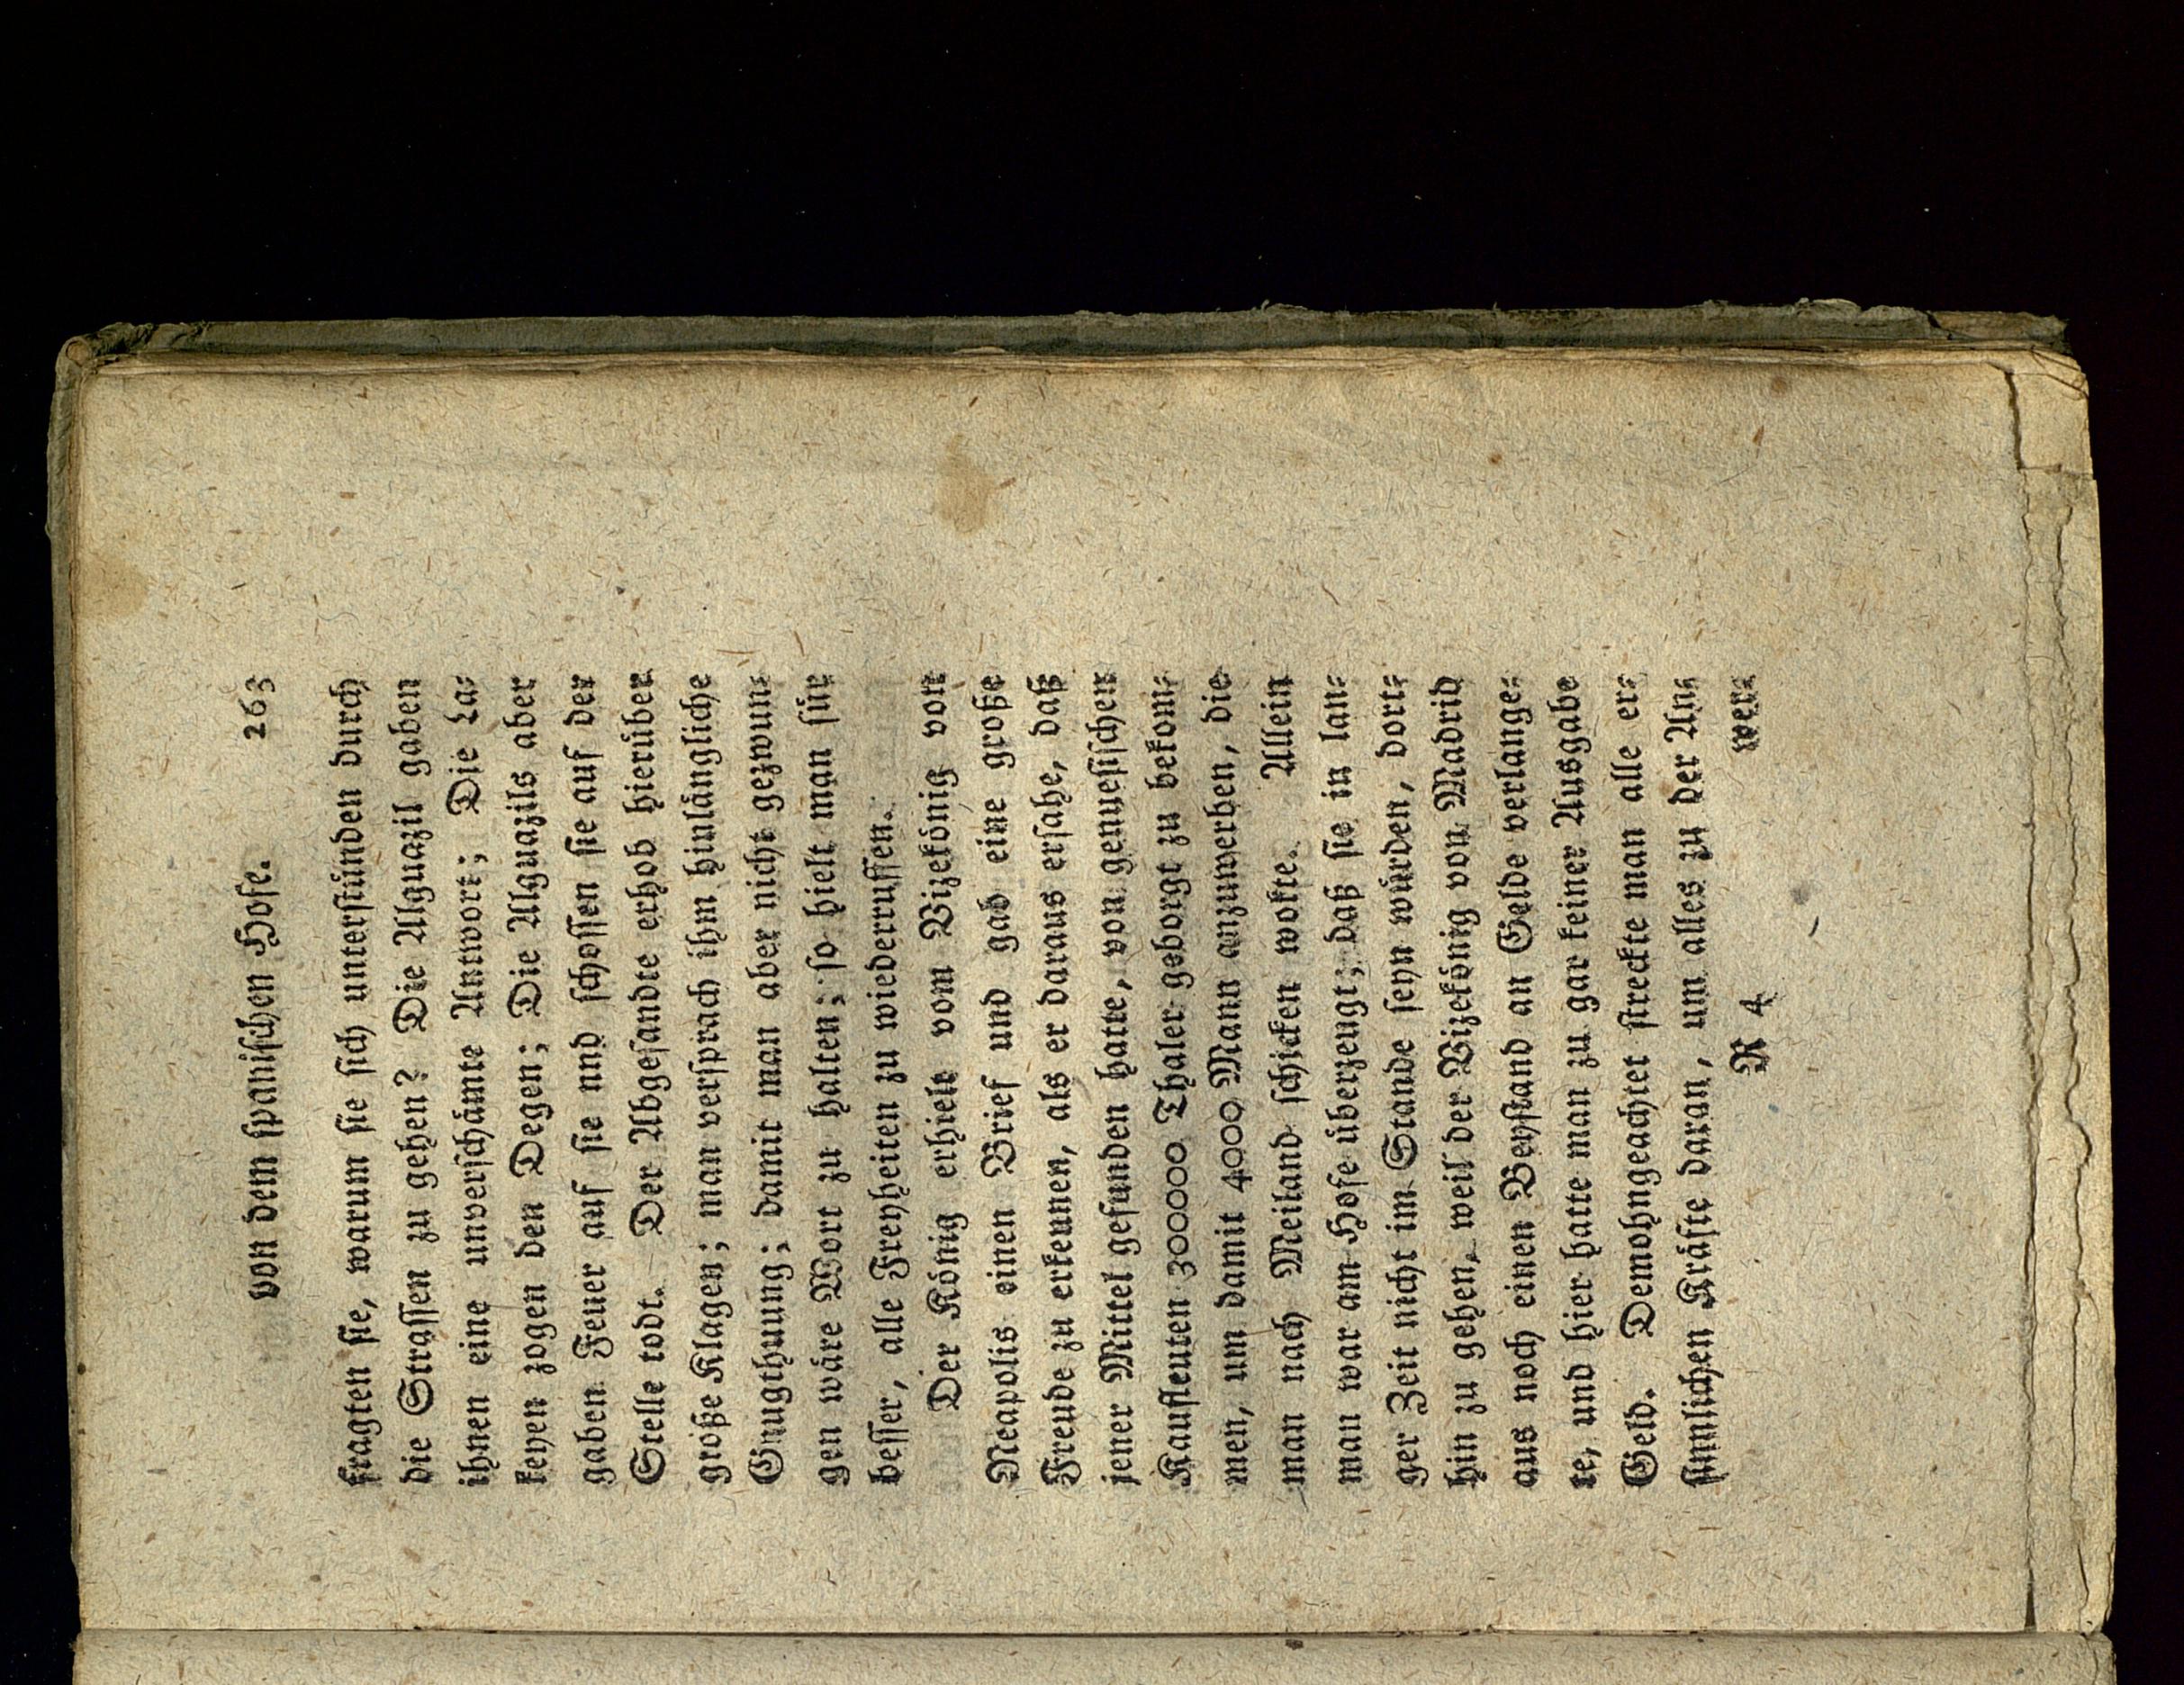 von dem ſpaniſchen Hofe. 263
fragten ſie, warum ſie ſich unterſtünden durch
die Straſſen zu gehen? Die Alguazil gaben
ihnen eine unverſchämte Antwort; Die La⸗
keyen zogen den Degen; Die Alguazils aber
gaben Feuer auf ſie nnd ſchoſſen ſie auf der
Stelle todt. Der Abgeſandte erhob hierüber
große Klagen; man verſprach ihm hinlängliche
Gnugthuung; damit man aber nicht gezwun⸗
gen wäre Wort zu halten; ſo hielt man für
beſſer, alle Freyheiten zu wiederruffen.
Der König erhielt vom Vizekönig von
Neapolis einen Brief und gab eine große
Freude zu erkennen, als er daraus erſahe, daß
jener Mittel gefunden hatte, von genueſiſchen
Kaufleuten 300000 Thaler geborgt zu bekom⸗
men, um damit 4000 Mann anzuwerben, die
man nach Meiland ſchicken wolte. Allein
man war am Hofe überzeugt; daß ſie in lan⸗
ger Zeit nicht im Stande ſeyn würden, dort⸗
hin zu gehen, weil der Vizekönig von Madrid
aus noch einen Beyſtand an Gelde verlange⸗
te, und hier hatte man zu gar keiner Ausgabe
Geld. Demohngeachtet ſtreckte man alle er⸗
ſinnlichen Kräfte daran, um alles zu der An⸗
R 4 wer⸗